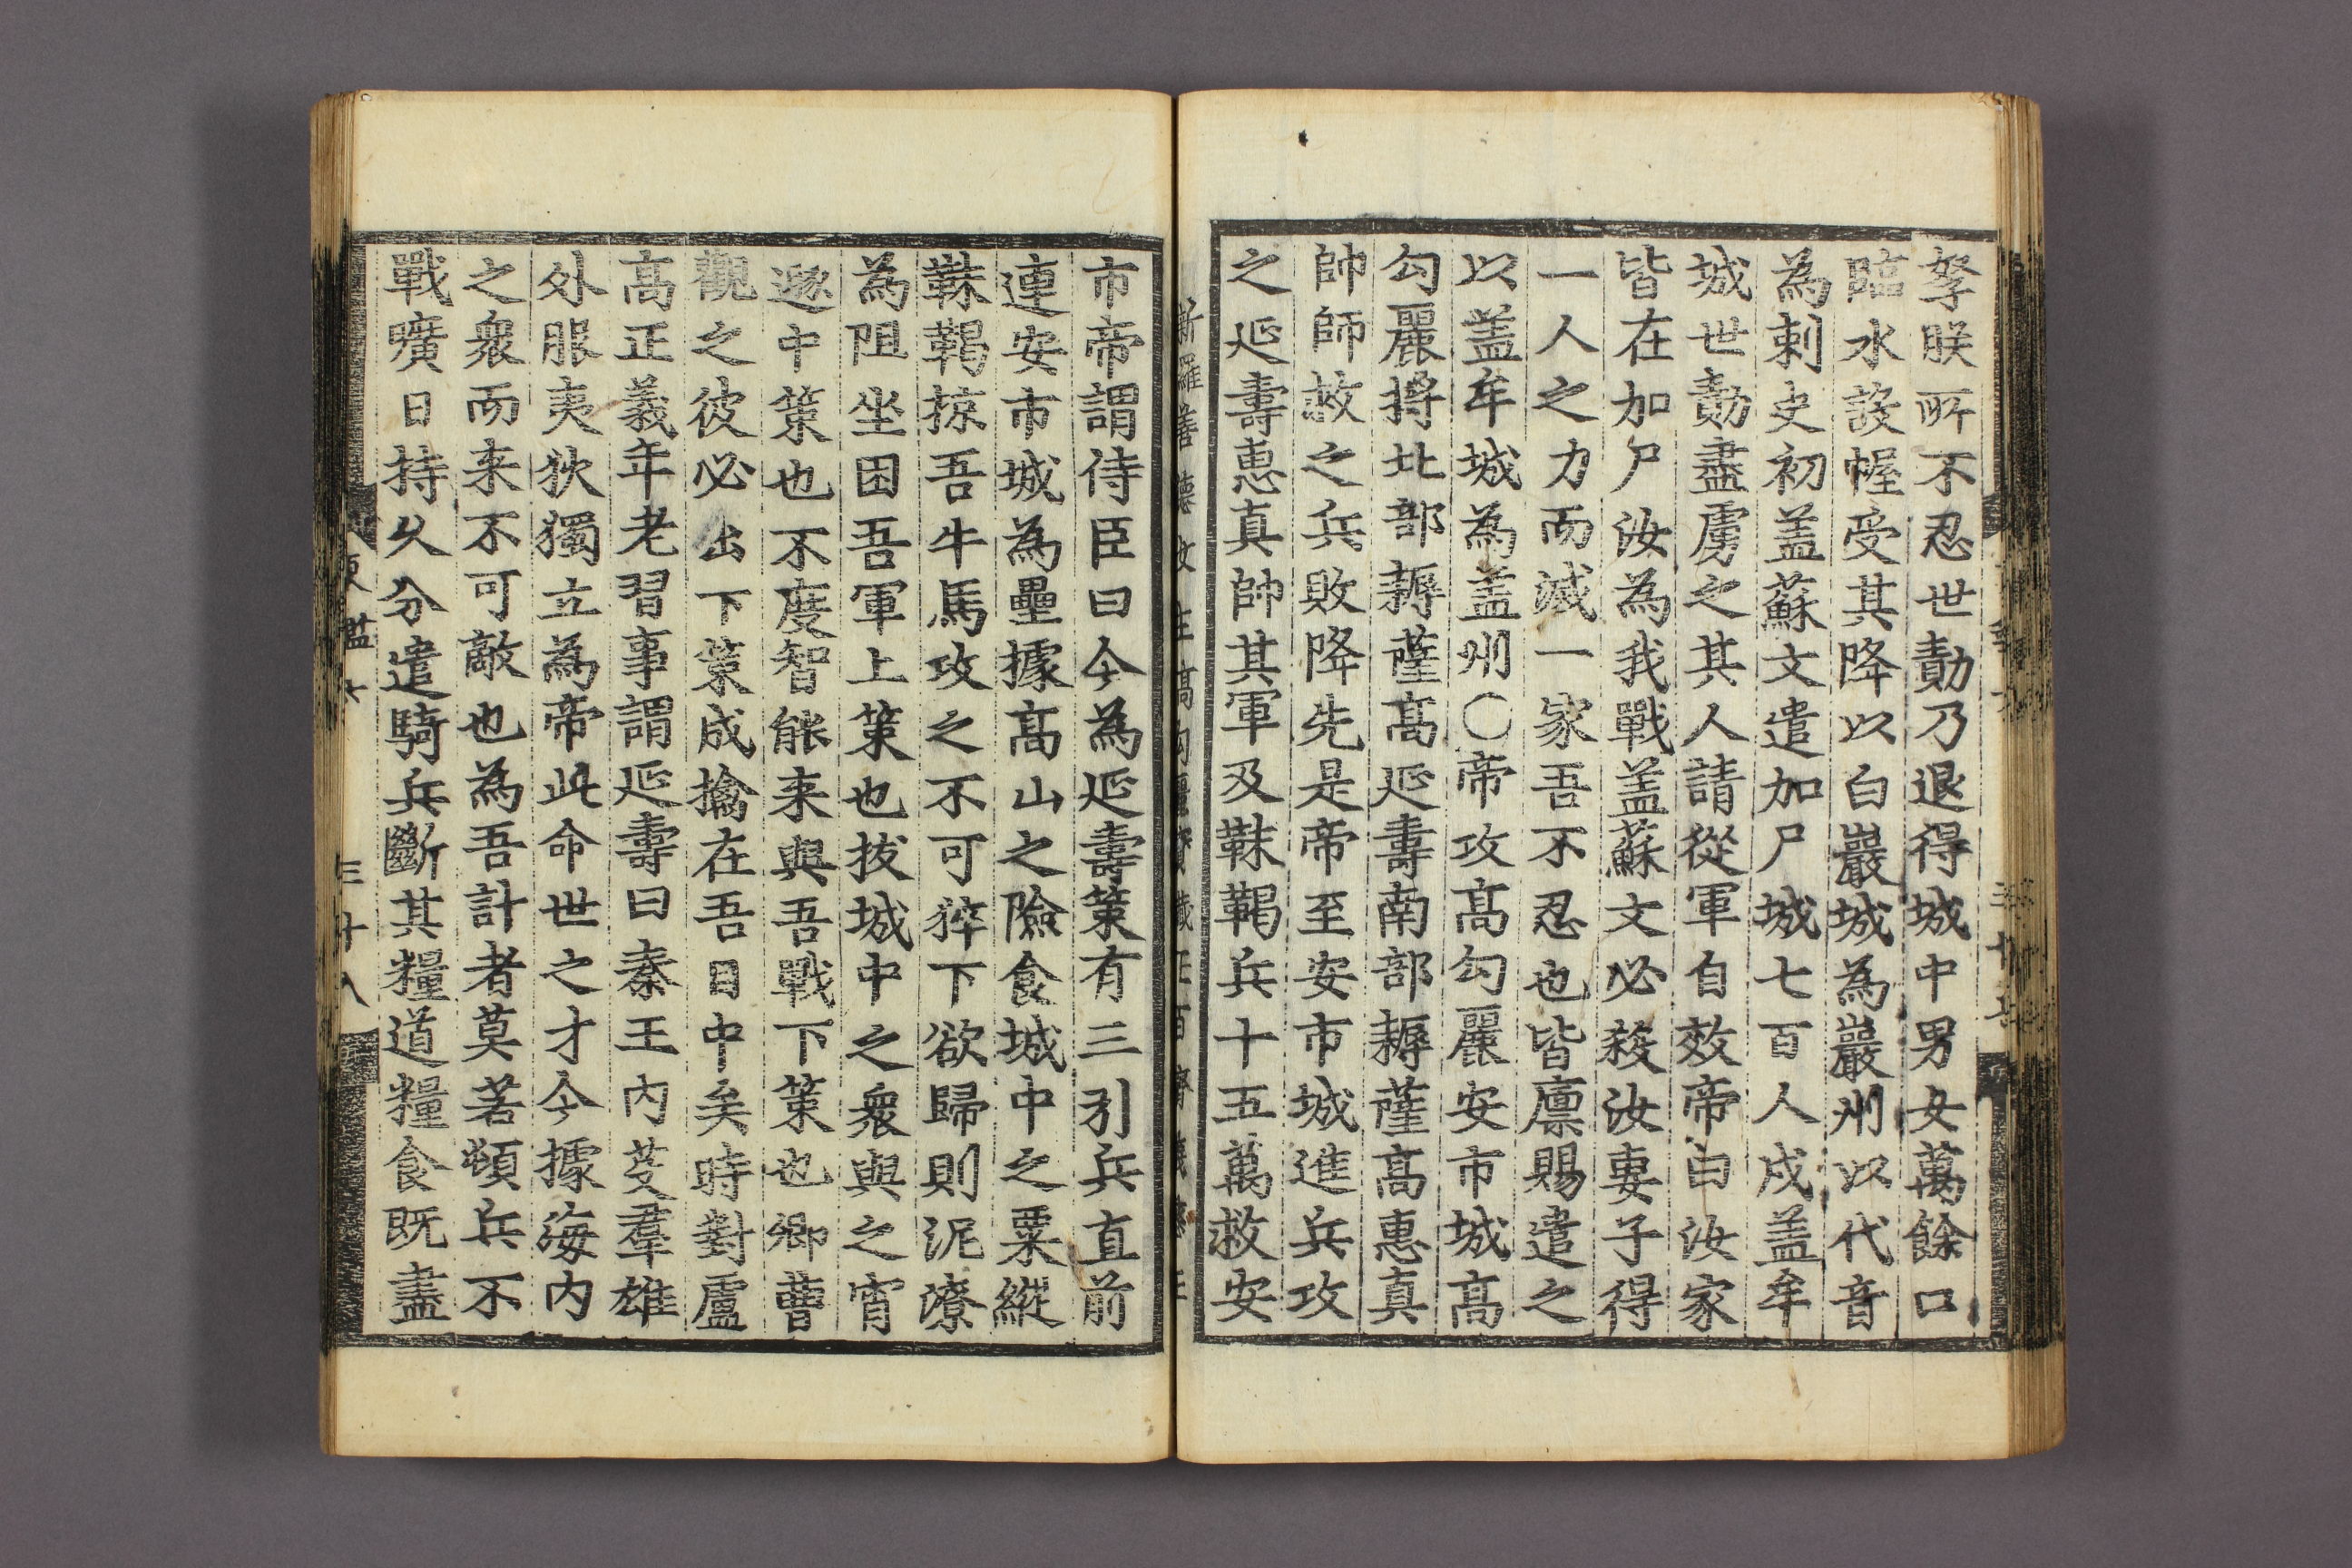 孥朕所不忍世勣乃退得城中男女萬餘口
臨水設幄受其降以白巖城為巖州以代音
為刺史初盖蘇文遣加尸城七百人戍盖牟
城世勣盡虜之其人請從軍自效帝曰汝家
皆在加尸汝為我戰盖蘇文必殺汝妻子得
一人之力而滅一家吾不忍也皆廩賜遣之
以盖牟城為盖州〇帝攻高勾麗安市城高
勾麗將北部耨薩高延壽南部耨薩高惠真
帥師救之兵敗降先是帝至安市城進兵攻
之延壽惠真帥其軍及靺鞨兵十五萬救安
市帝謂侍臣曰今為延壽策有三引兵直前
連安市城為壘據高山之險食城中之粟縱
靺鞨掠吾牛馬攻之不可猝下欲歸則泥潦
為阻坐困吾軍上策也拔城中之衆與之宵
遯中策也不度智能来與吾戰下策也卿曹
觀之彼必出下策成擒在吾目中矣時對盧
高正義年老習事謂延壽曰秦王內芟羣雄
外服夷狄獨立為帝此命世之才今據海內
之衆而来不可敵也為吾計者莫若頓兵不
戰曠日持久分遣騎兵斷其糧道糧食既盡
三十八